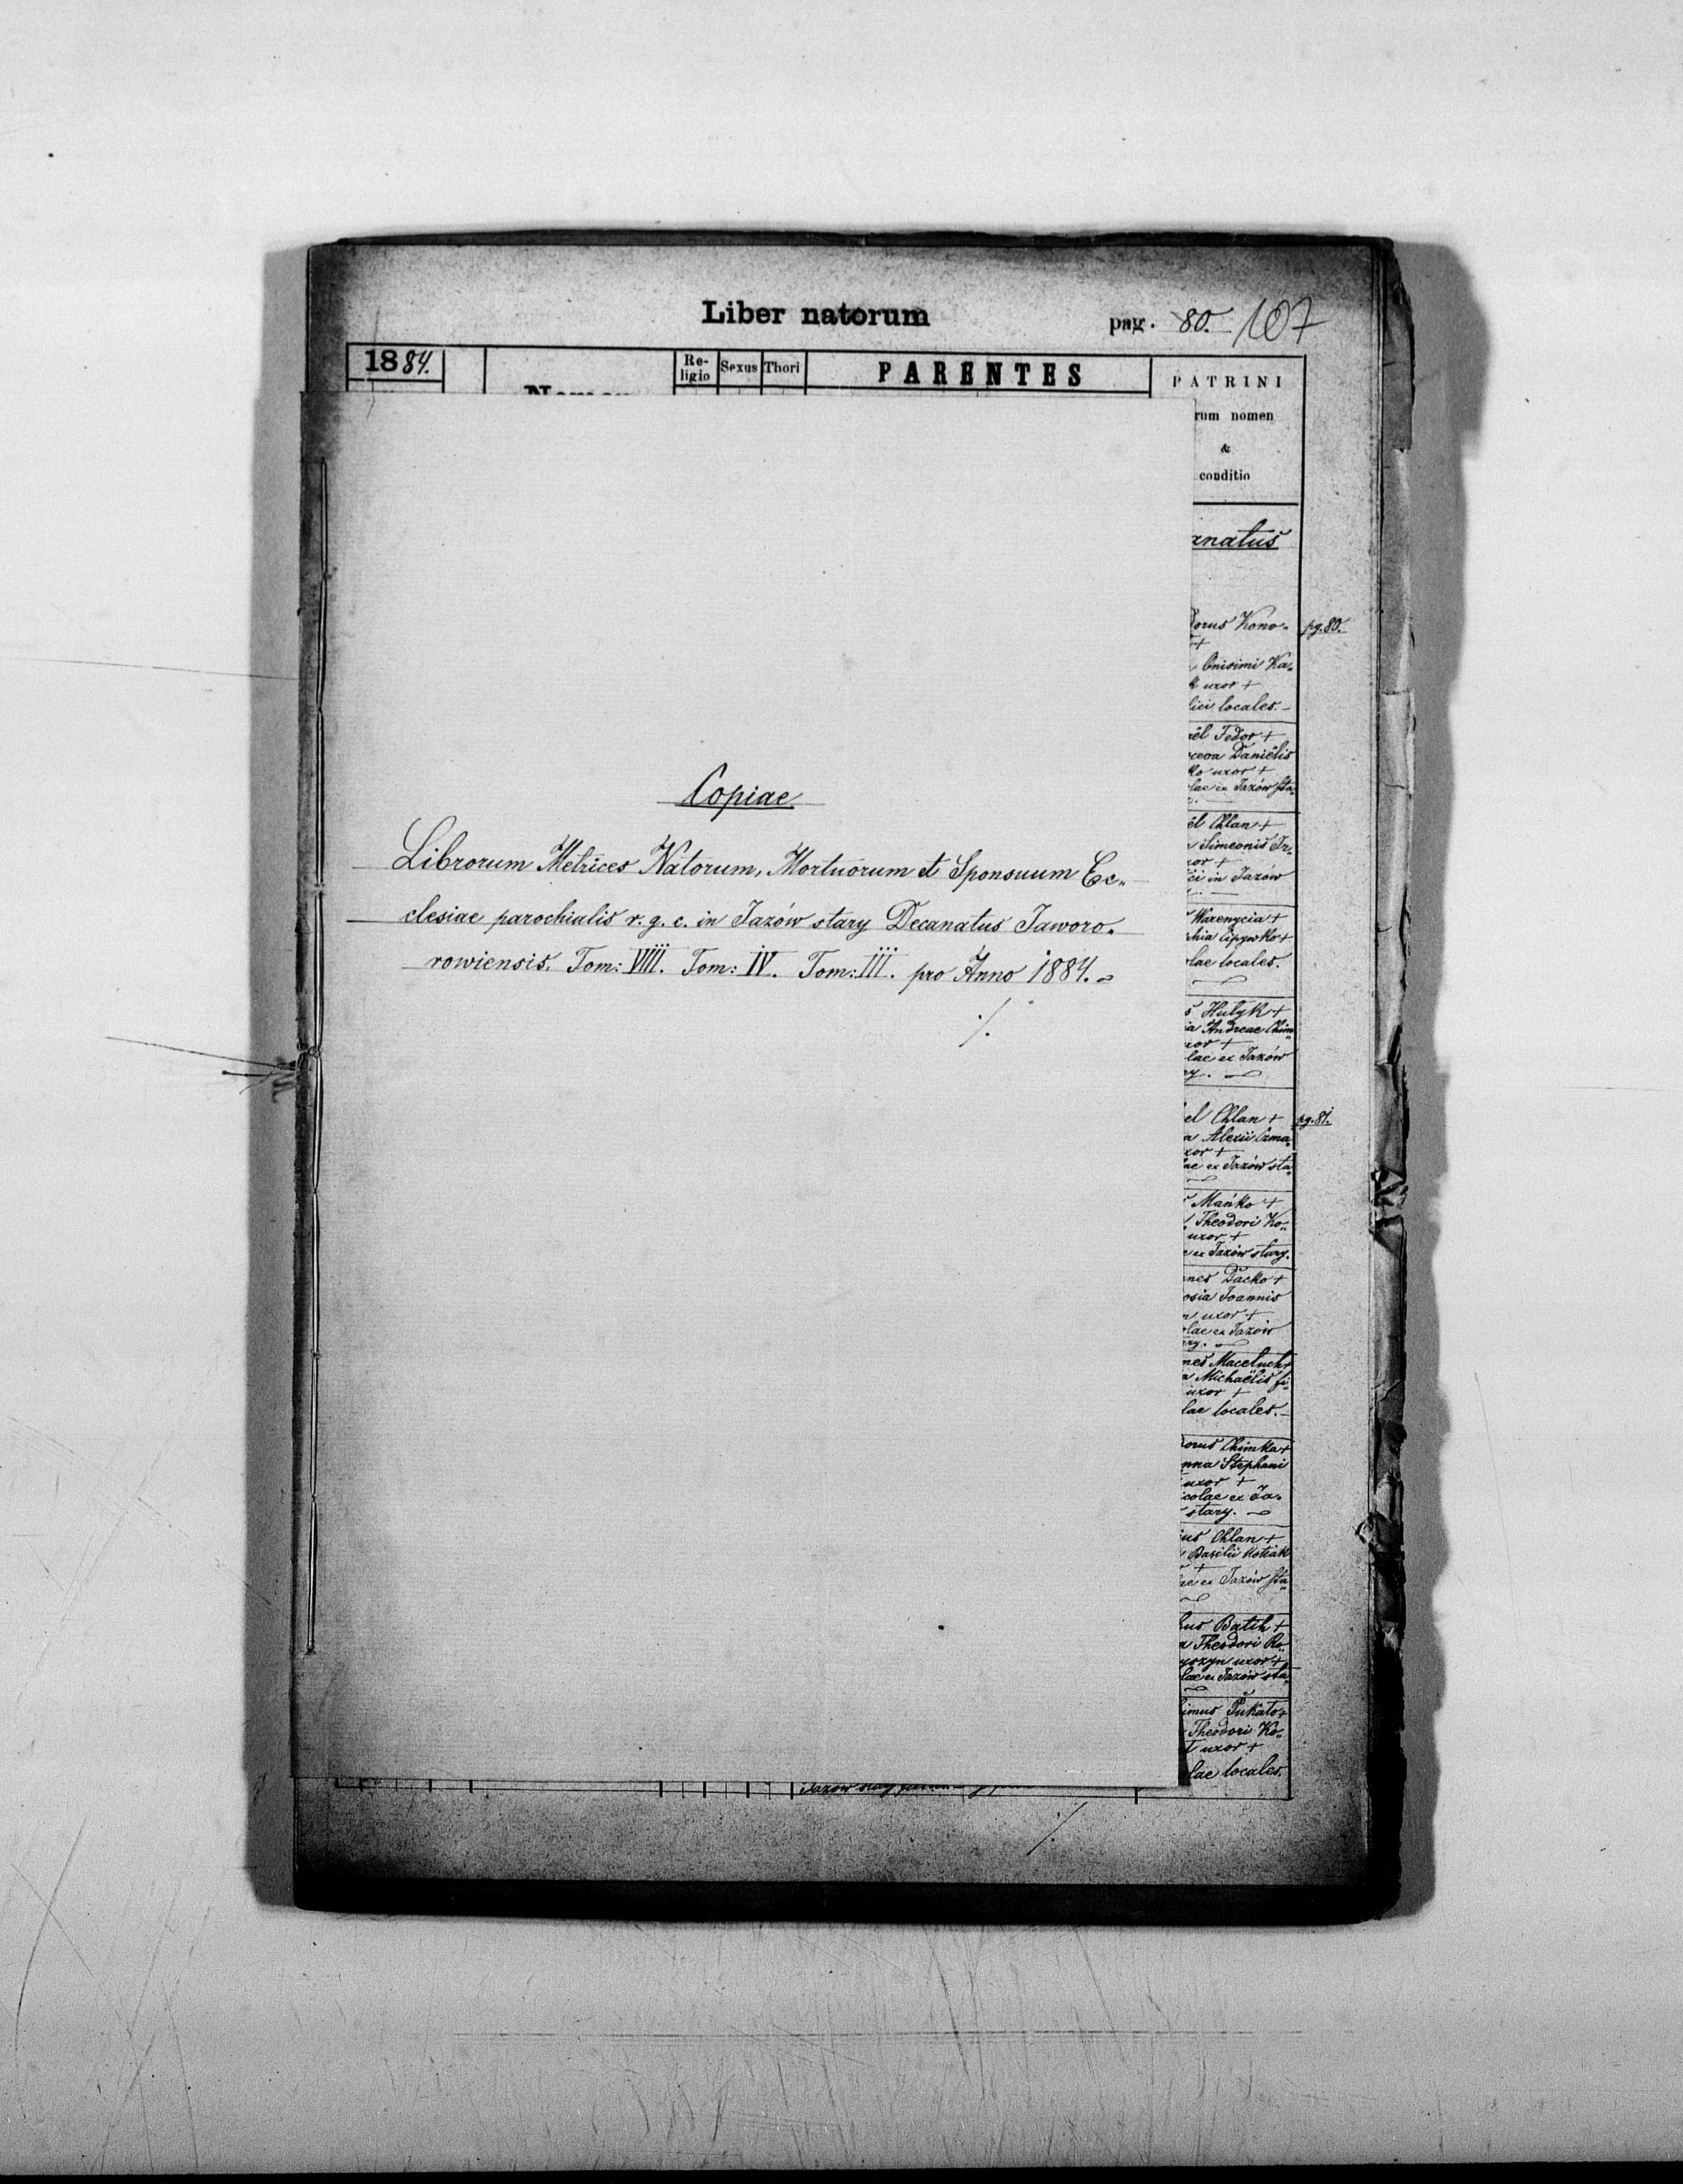 Liber natorum
pag. 80. 107
1884.
Re-
ligio
Sexus
Thori
PARENTES
PATRINI
rum nomen
&
conditio
Copiae
Librorum Metrices Natorum, Mortuorum et Sponsuum Ec„
clesiae parochialis r. g. c. in Jazów stary Decanatus Jaworo„
rowiensis. Tom: VIII. Tom: IV. Tom: III. pro Anno 1884.
./.
anatus
orus Kono„
pg. 80.
Onisimi Ka„
uxor +
locales.
Fedor +
Daniëlis
uxor +
lae ex Jazów sta„
Chlan +
Simeonis
in Jazów
Warenycia +
lae locales.
Hutyk +
Andreae
lae ex Jazów
el Chlan +
pg. 81.
Alexii
ex Jazów sta„
Mańko +
Theodori Ko„
uxor +
ex Jazów stary.
nes Dacko +
osia Joannis
uxor +
lae ex Jazów
nes Maceluch +
Michaëlis
uxor +
lae locales.
orus Chimka +
nna Stephani
uxor +
colae ex Ja„
stary.
Chlan +
Basilii Kotiak
ex Jazów sta„
Batih +
Theodori
uxor +
ex Jazów sta„
imus Pukato +
Theodori Ko„
uxor +
lae locales.
Jazów
./.